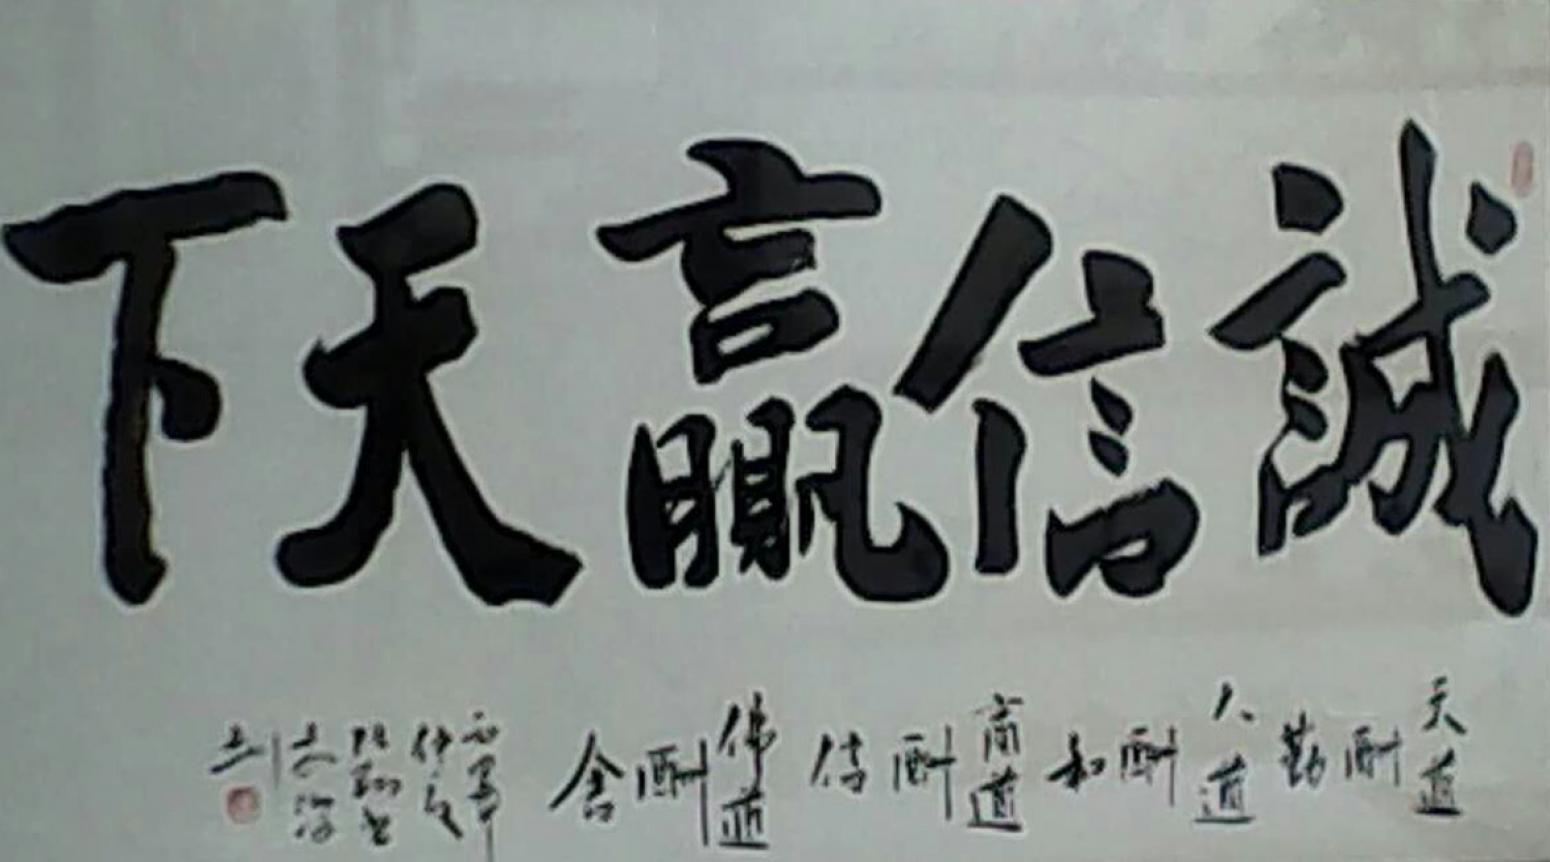 誠信贏天下
天道酬勤 人道酬和 商道酬信 佛道酬舍